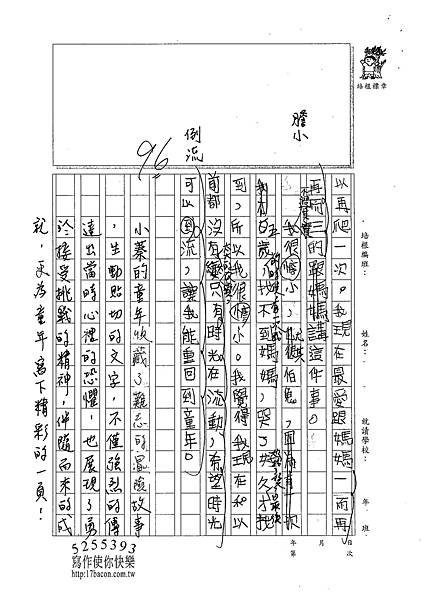 培根標章
培根編班：
姓名：
就讀學校：
年 班
月 日
第 次
膽小
倒流
96
以再爬一次。我現在最愛跟媽媽一而再
再而三的跟媽媽講這件事。
我很個小，尤其
到，所以我很個小。我覺得我現在和以
前都沒有變，只有時光在流動，希望時光
可以到流，讓我能重回到童年。
小蓁的童年收藏了難忘的冒險故事
，生動貼切的文字，不僅強烈的傳
達出當時心裡的恐懼，也展現了勇
於接受挑戰的精神，伴隨而來的成
就，更為童年寫下精彩的一頁！
5255393
寫作使你快樂
http://www.17bacon.com.tw